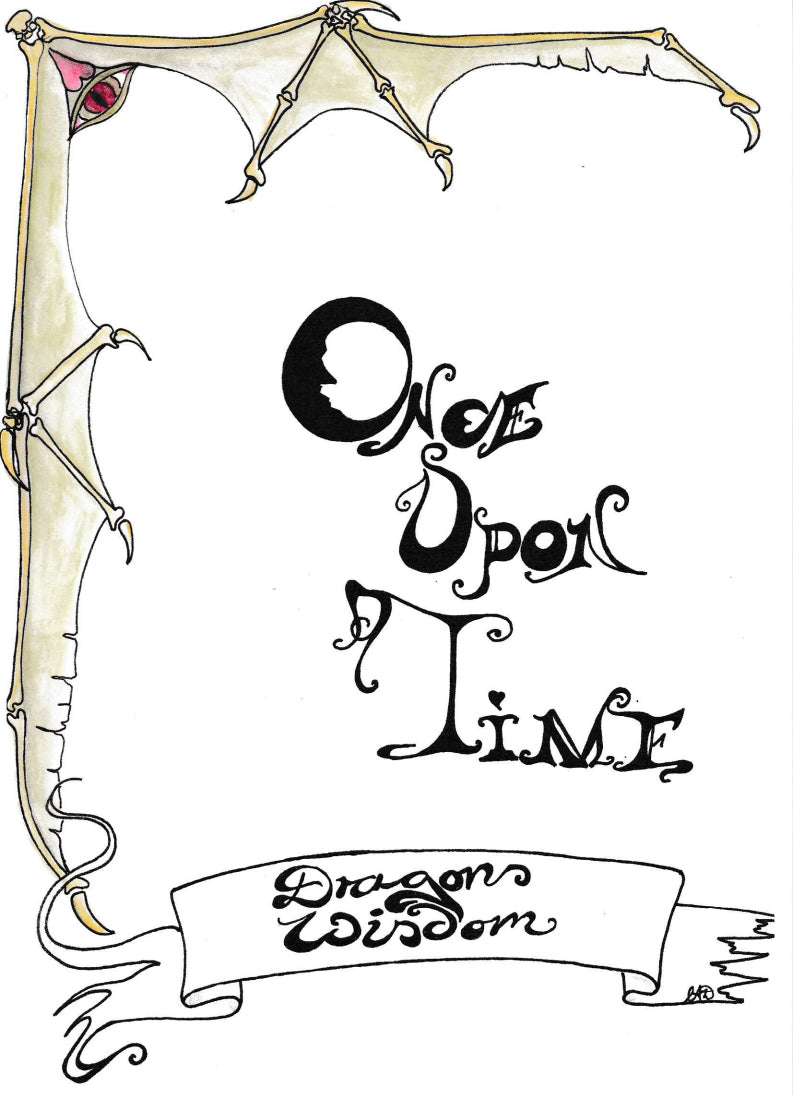 Once
Upon
Time
Dragons
Wisdom